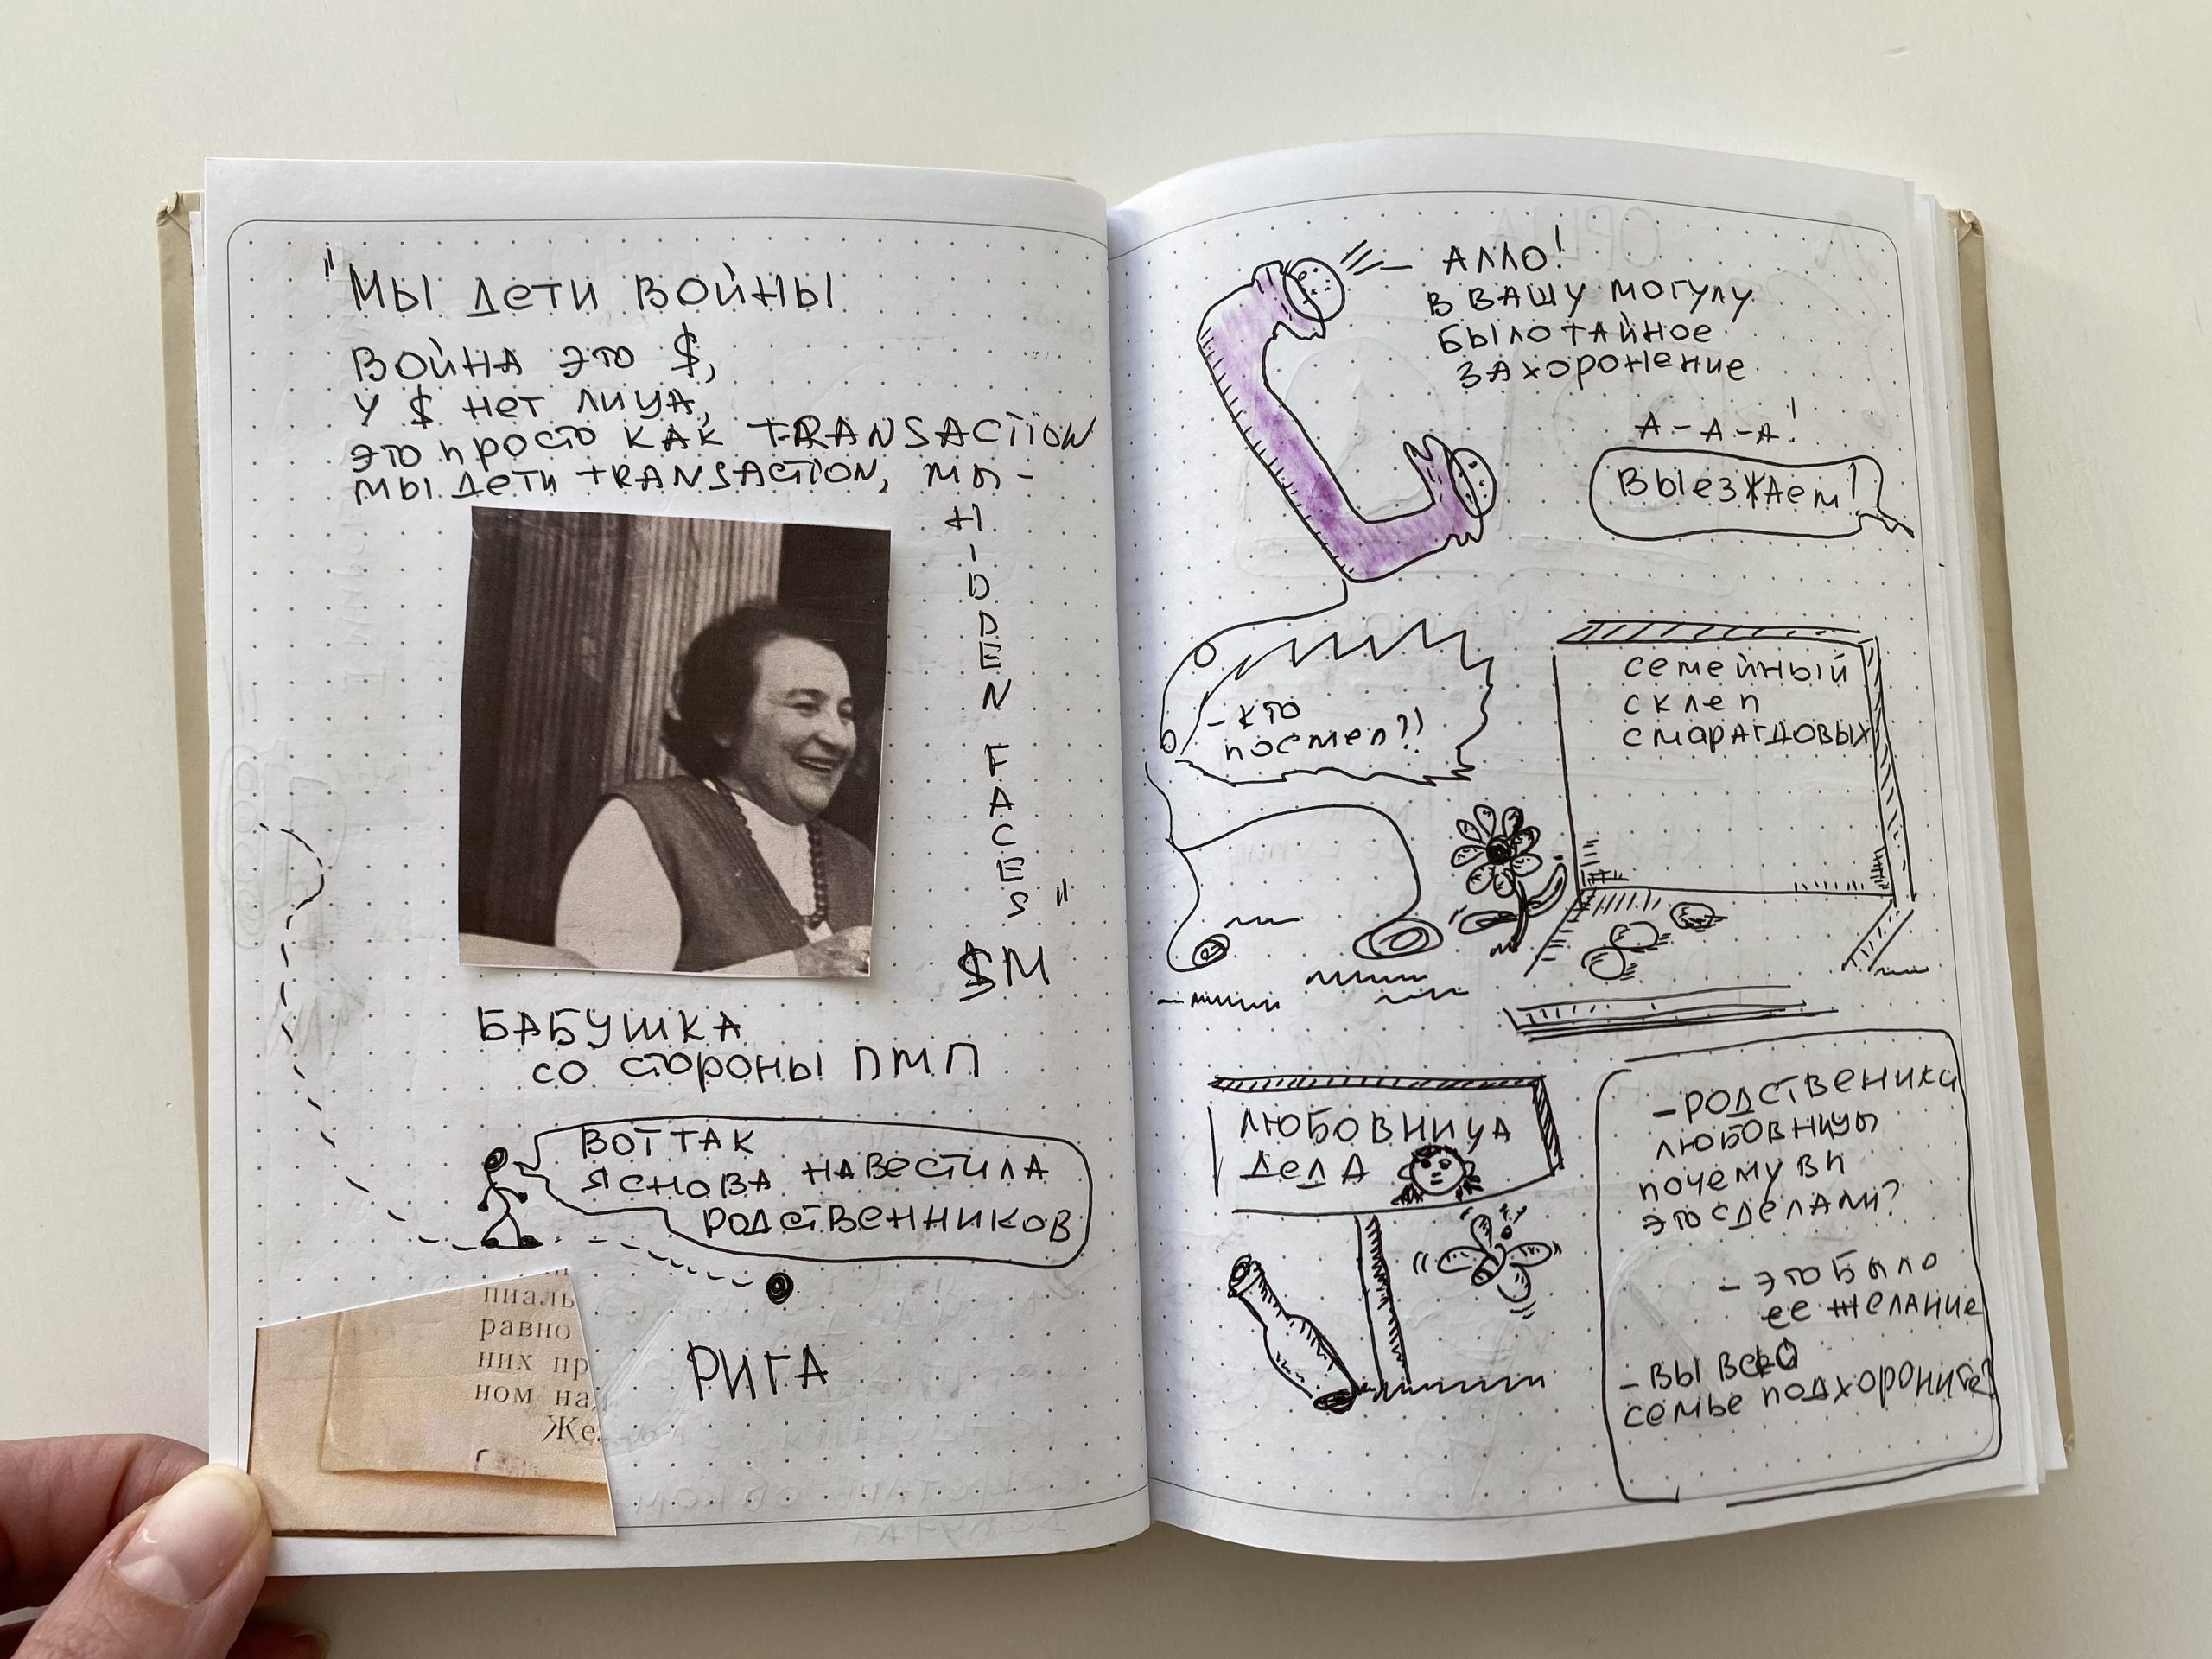 "Мы дети войны
война это $,
у $ нет лица,
это просто как TRANSACTION
мы дети TRANSACTION, мы -
HIDDEN FACES"
$M
БАБУШКА
со стороны ПМП
ВОТ ТАК
Я СНОВА НАВЕСТИЛА
РОДСТВЕННИКОВ
РИГА
пиаль
равно
них пр
ном на
Же
- АЛЛО!
В ВАШУ МОГУЛУ
БЫЛО ТАЙНОЕ
ЗАХОРОНЕНИЕ
А-А-А!
Выезжаем!
- КТО
посмел?!
семейный
склеп
смарагдовых
ЛЮБОВНИЦА
ДЕДА
- РОДСТВЕНИКИ
ЛЮБОВНИЦЫ
почему вы
это сделали?
- это было
ее желание
- ВЫ ВСЮ
семье подхороните?